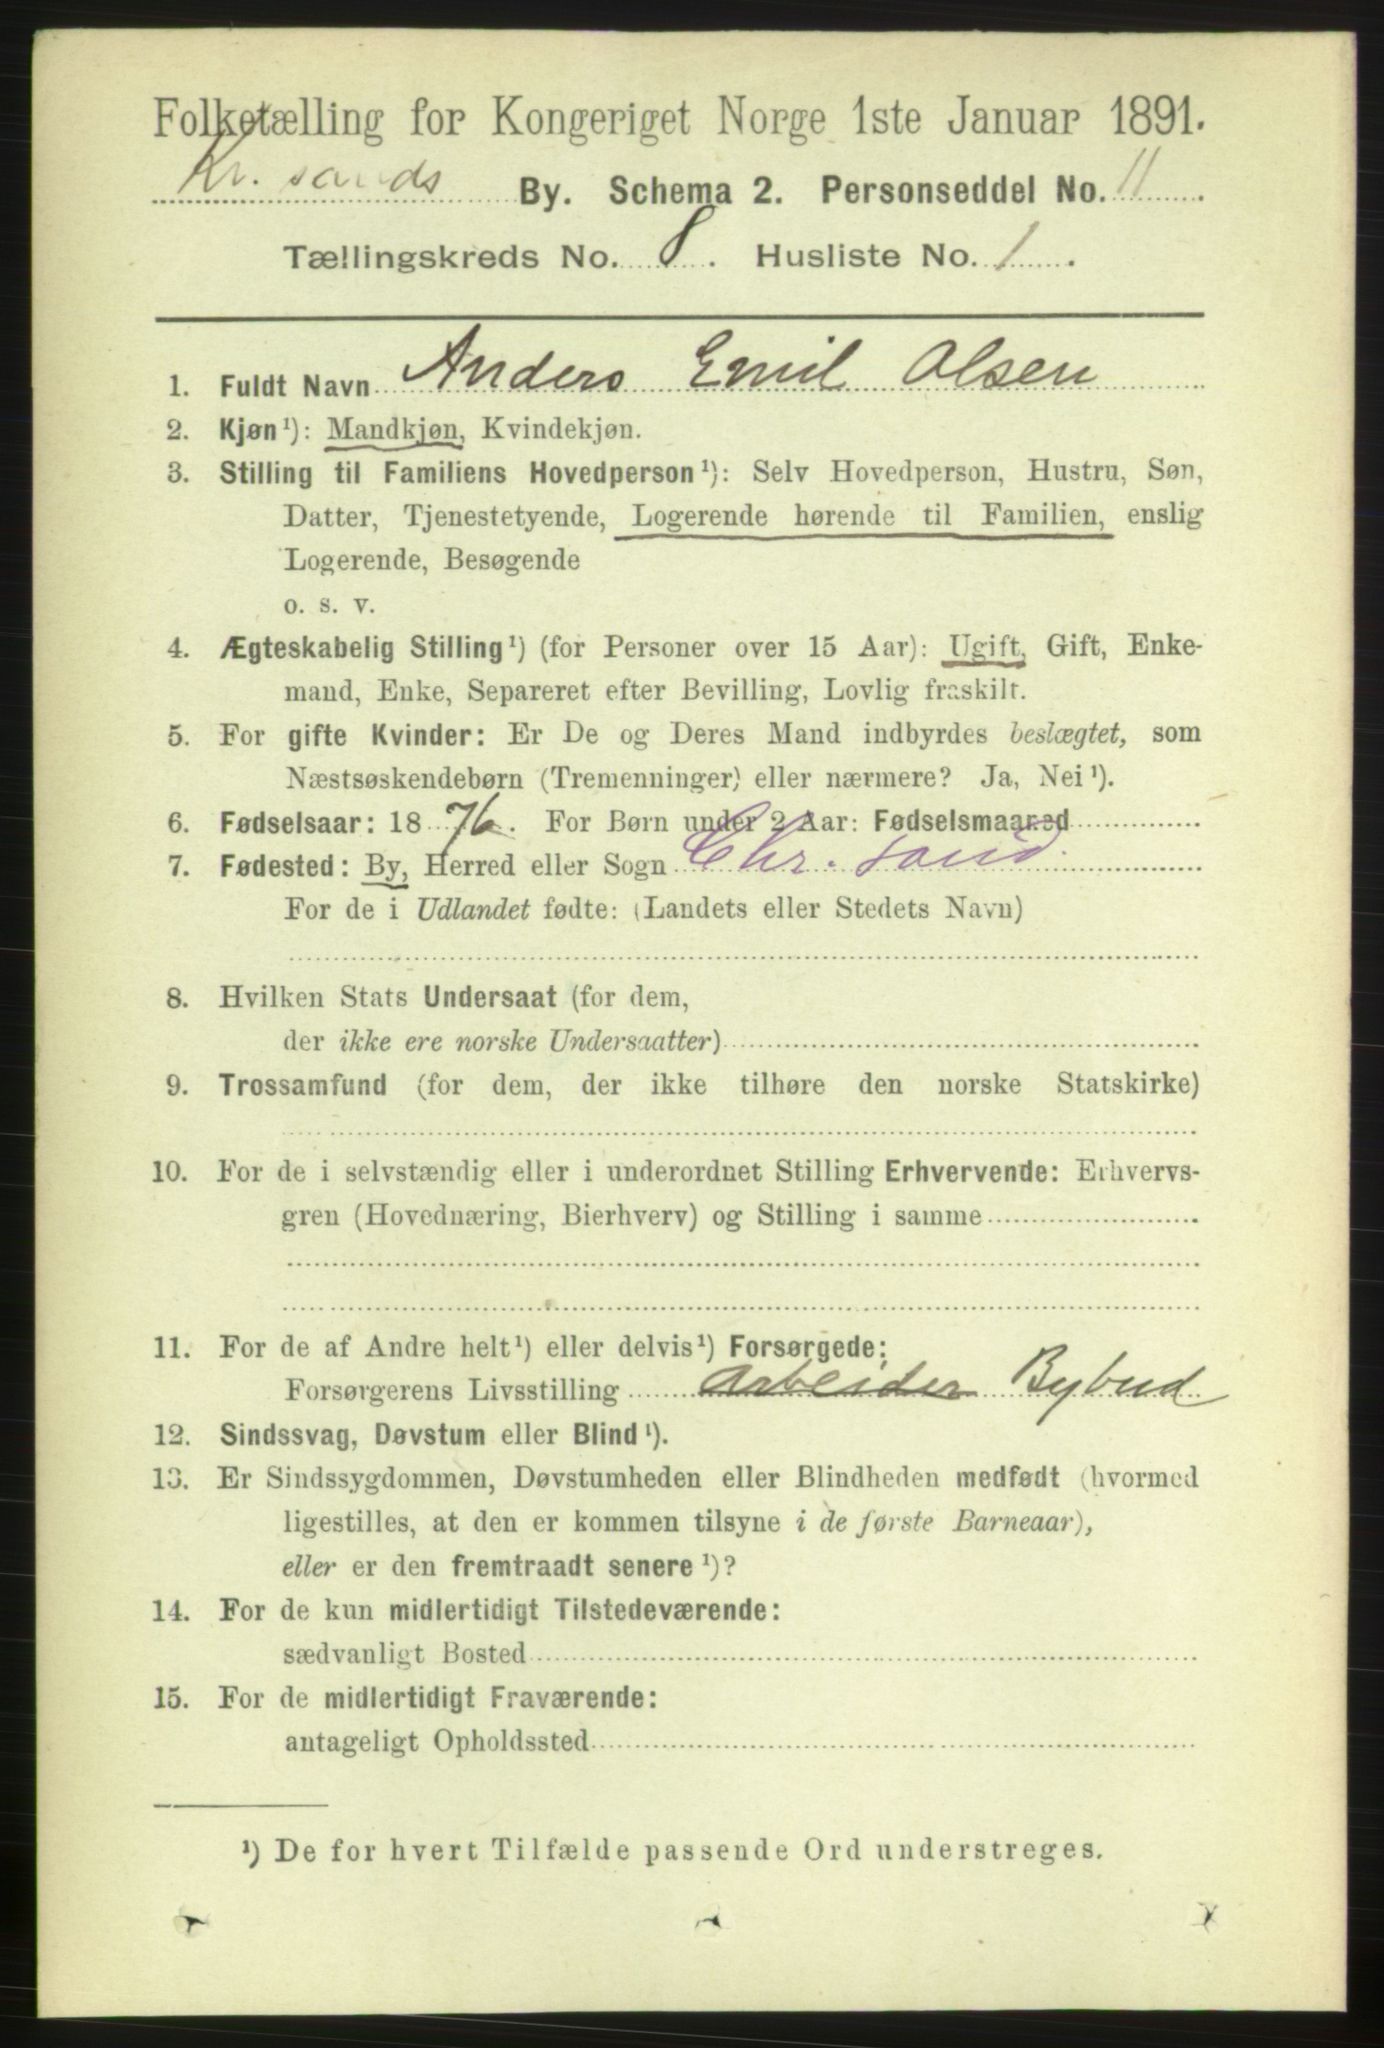 Folketælling for Kongeriget Norge 1ste Januar 1891.
Kr. sands By. Schema 2. Personseddel No. 11
Tællingskreds No. 8. Husliste No. 1.
1. Fuldt Navn Anders Emil Olsen
2. Kjøn¹): Mandkjøn, Kvindekjøn.
3. Stilling til Familiens Hovedperson¹): Selv Hovedperson, Hustru, Søn,
Datter, Tjenestetyende, Logerende hørende til Familien, enslig
Logerende, Besøgende
o. s. v.
4. Ægteskabelig Stilling¹) (for Personer over 15 Aar): Ugift, Gift, Enke-
mand, Enke, Separeret efter Bevilling, Lovlig fraskilt.
5. For gifte Kvinder: Er De og Deres Mand indbyrdes beslægtet, som
Næstsøskendebørn (Tremenninger) eller nærmere? Ja, Nei¹).
6. Fødselsaar: 1876. For Børn under 2 Aar: Fødselsmaaned
7. Fødested: By, Herred eller Sogn Chr. sand.
For de i Udlandet fødte: (Landets eller Stedets Navn)
8. Hvilken Stats Undersaat (for dem,
der ikke ere norske Undersaatter)
9. Trossamfund (for dem, der ikke tilhøre den norske Statskirke)
10. For de i selvstændig eller i underordnet Stilling Erhvervende: Erhvervs-
gren (Hovednæring, Bierhverv) og Stilling i samme
11. For de af Andre helt¹) eller delvis¹) Forsørgede:
Forsørgerens Livsstilling Arbeider Bybud
12. Sindssvag, Døvstum eller Blind¹).
13. Er Sindssygdommen, Døvstumheden eller Blindheden medfødt (hvormed
ligestilles, at den er kommen tilsyne i de første Barneaar),
eller er den fremtraadt senere¹)?
14. For de kun midlertidigt Tilstedeværende:
sædvanligt Bosted
15. For de midlertidigt Fraværende:
antageligt Opholdssted
¹) De for hvert Tilfælde passende Ord understreges.